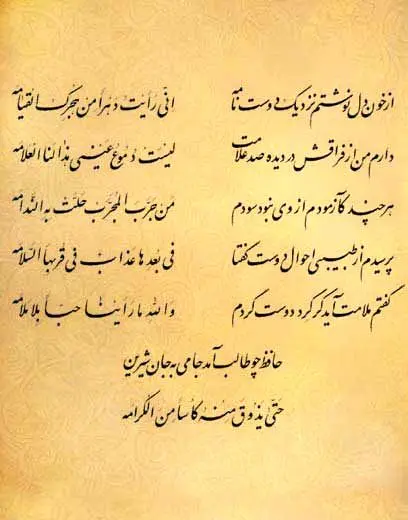 از خون دل نوشتم نزدیک دوست نامه انّی رَأیتُ دَهراً مِن هَجرِکَ القیامه
دارم من از فراقش در دیده صد علامت لَیسَت دُموعُ عَینی هذا لَنا العَلامه
هر چند کآزمودم از وی نبود سودم مَن جَرَّبَ المُجَرَّب حَلَّت بِهِ النَّدامه
پرسیدم از طبیبی احوال دوست گفتا فی بُعدِها عَذابٌ فی قُربِها السَّلامه
گفتم ملامت آید گر گرد دوست گردم وَاللهِ ما رَأینا حُبّاً بِلا مَلامه
حافظ چو طالب آمد جامی به جان شیرین
حَتّی یَذوقَ مِنهُ کَأساً مِنَ الکَرامه